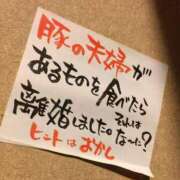 豚の夫婦が
あるものを食べたら
離婚しました。それは
なーに?
ヒントはおかし